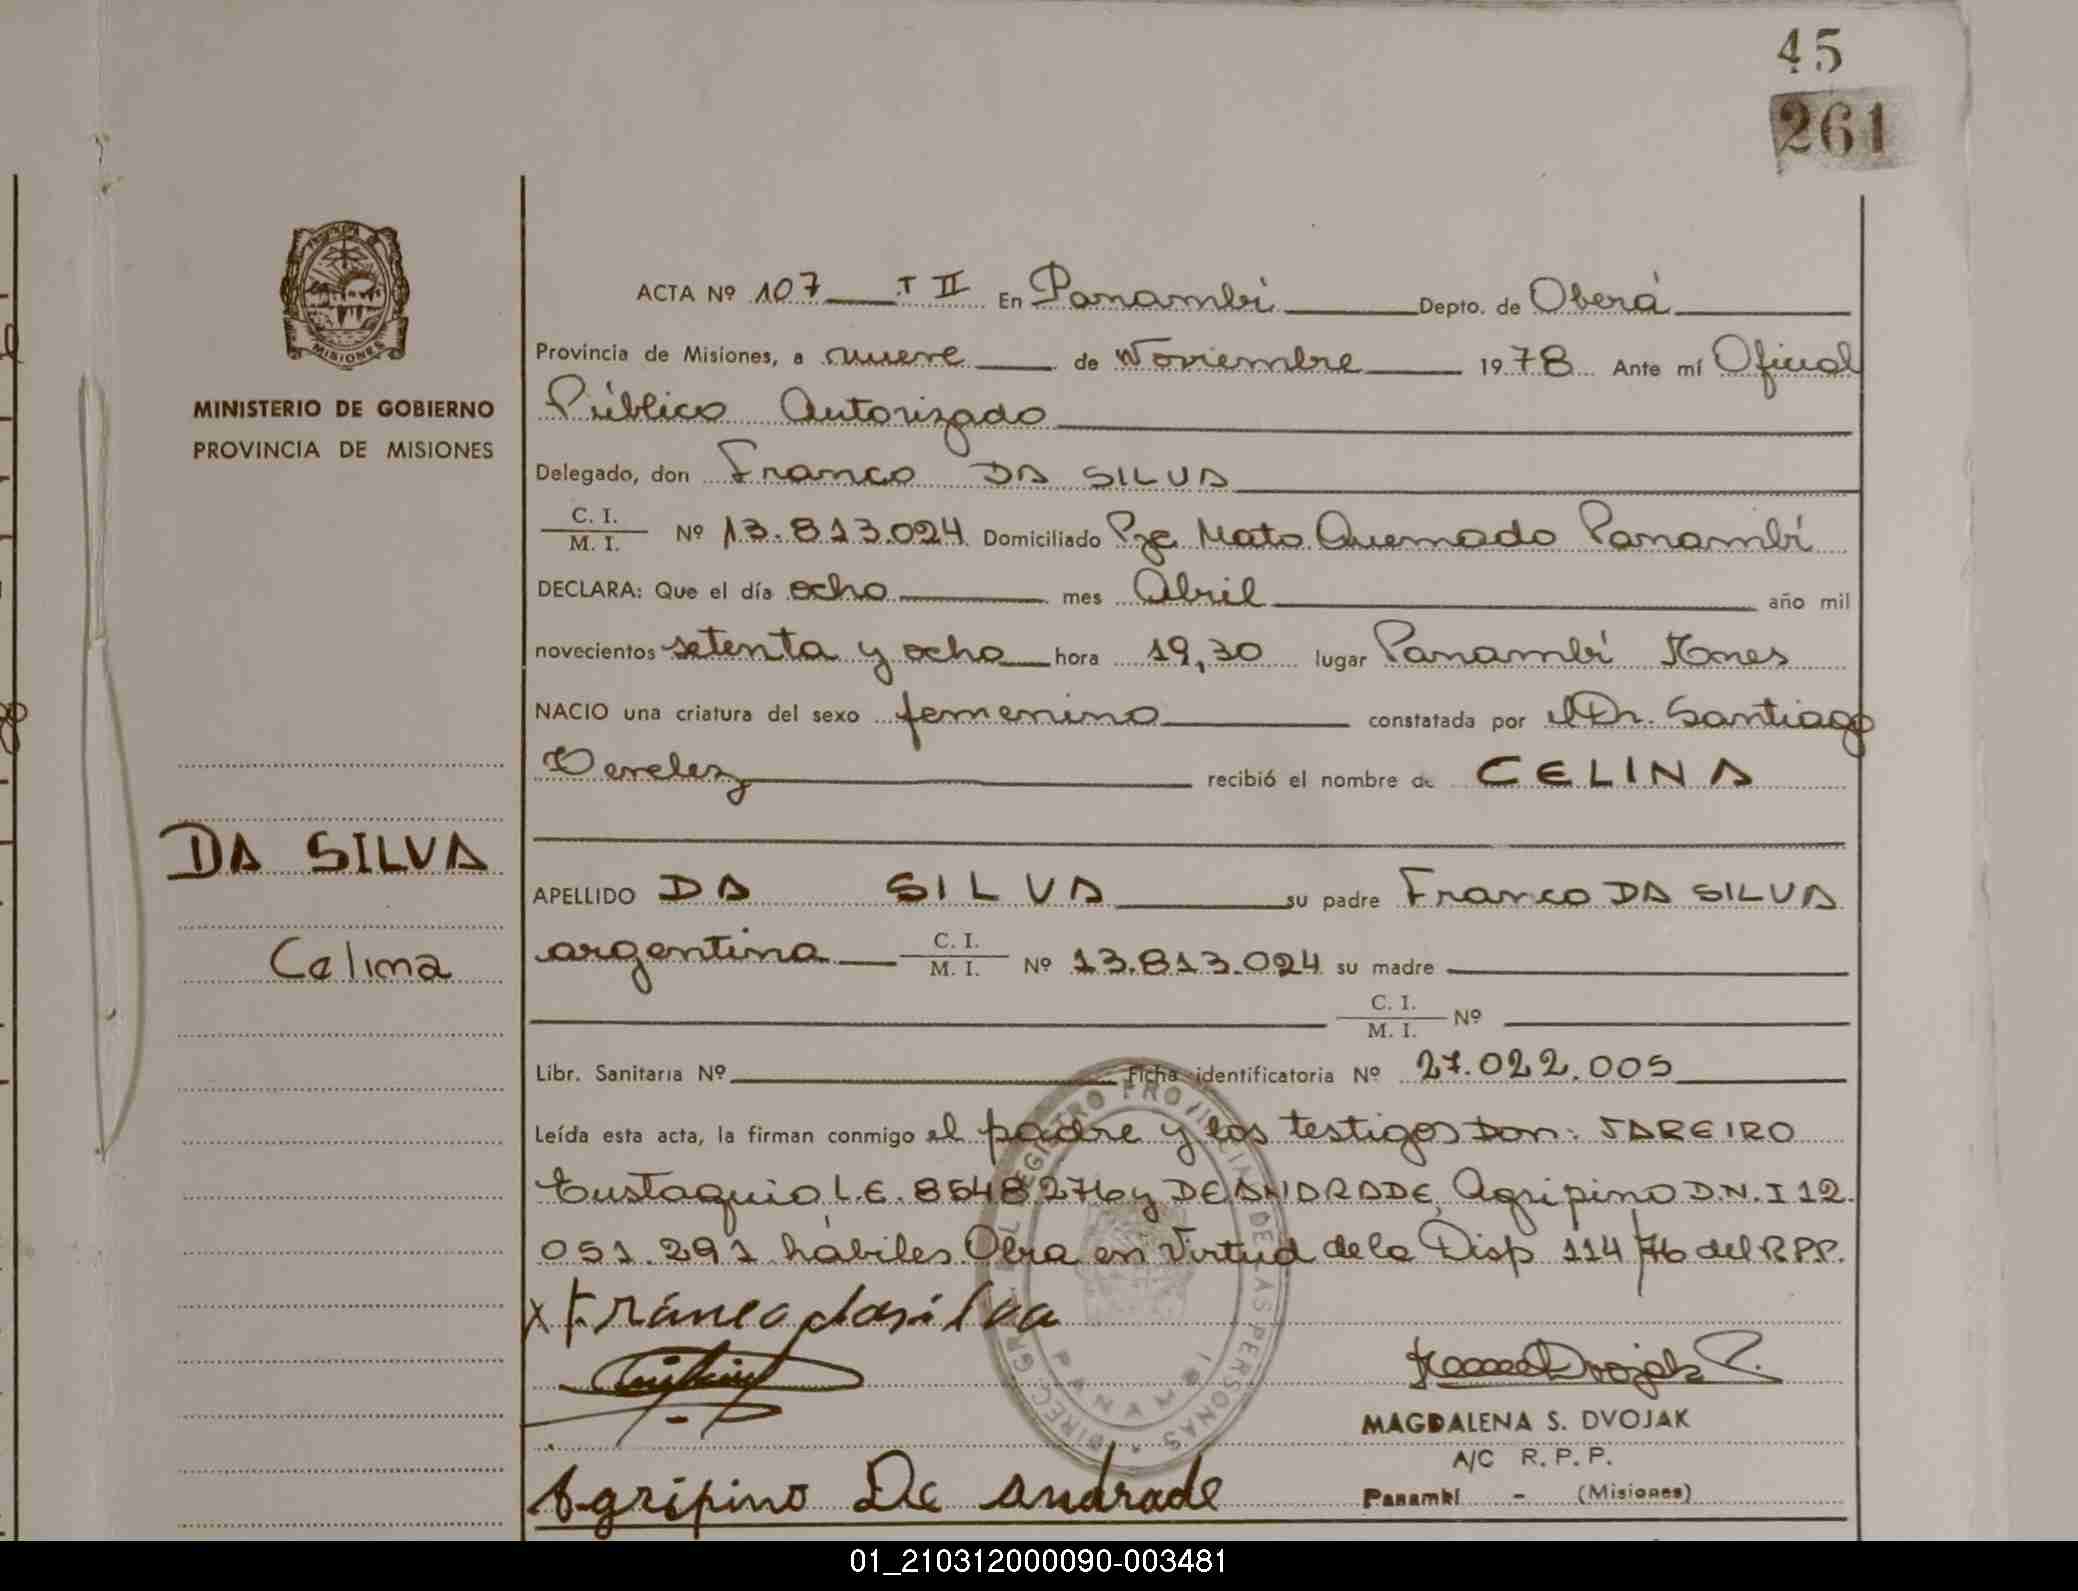 45
261
MISIONES
MINISTERIO DE GOBIERNO
PROVINCIA DE MISIONES
DA SILVA
Celina
ACTA Nº 107 T II En Panambí Depto. de Oberá
Provincia de Misiones, a nueve de Noviembre 1978 Ante mí Oficial
Público Autorizado
Delegado, don Franco DA SILVA
C. I.
M. I. Nº 13.813.024 Domiciliado Pje Mato Quemado Panambí
DECLARA: Que el día ocho mes Abril año mil
novecientos setenta y ocho hora 19,30 lugar Panambí Mnes
NACIO una criatura del sexo femenino constatada por el Dr. Santiago
recibió el nombre de CELINA
APELLIDO DA SILVA su padre Franco DA SILVA
argentina C. I.
M. I. Nº 13.813.024 su madre
C. I.
M. I. Nº
Libr. Sanitaria Nº Ficha identificatoria Nº 27.022.005
Leída esta acta, la firman conmigo el padre y los testigos Don: JAREIRO
Eustaquio L.E. 8548276 y DE ANDRADE Agripino D.N.I 12.
051.291 hábiles. Obra en Virtud de la Disp 114/76 del R.P.P.
x Franco dasilva
Dvojak
MAGDALENA S. DVOJAK
A/C R. P. P.
Agripino De andrade Panambí - (Misiones)
PANAMBI
01_210312000090-003481